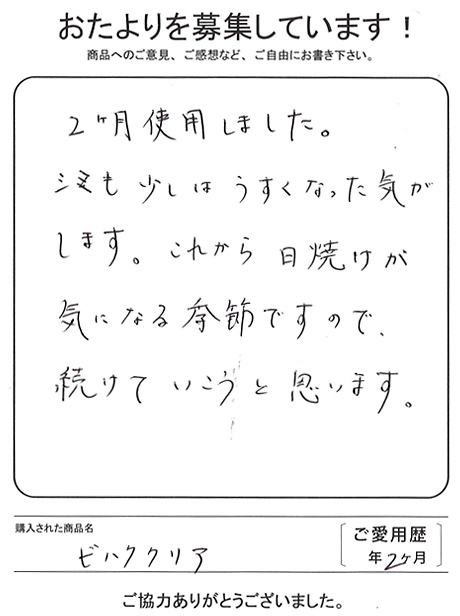 おたよりを募集しています！
商品へのご意見、ご感想など、ご自由にお書き下さい。
2ヶ月使用しました。
シミも少しはうすくなった気が
します。これから日焼けが
気になる季節ですので、
続けていこうと思います。
購入された商品名
ビハククリア
ご愛用歴
年2ヶ月
ご協力ありがとうございました。